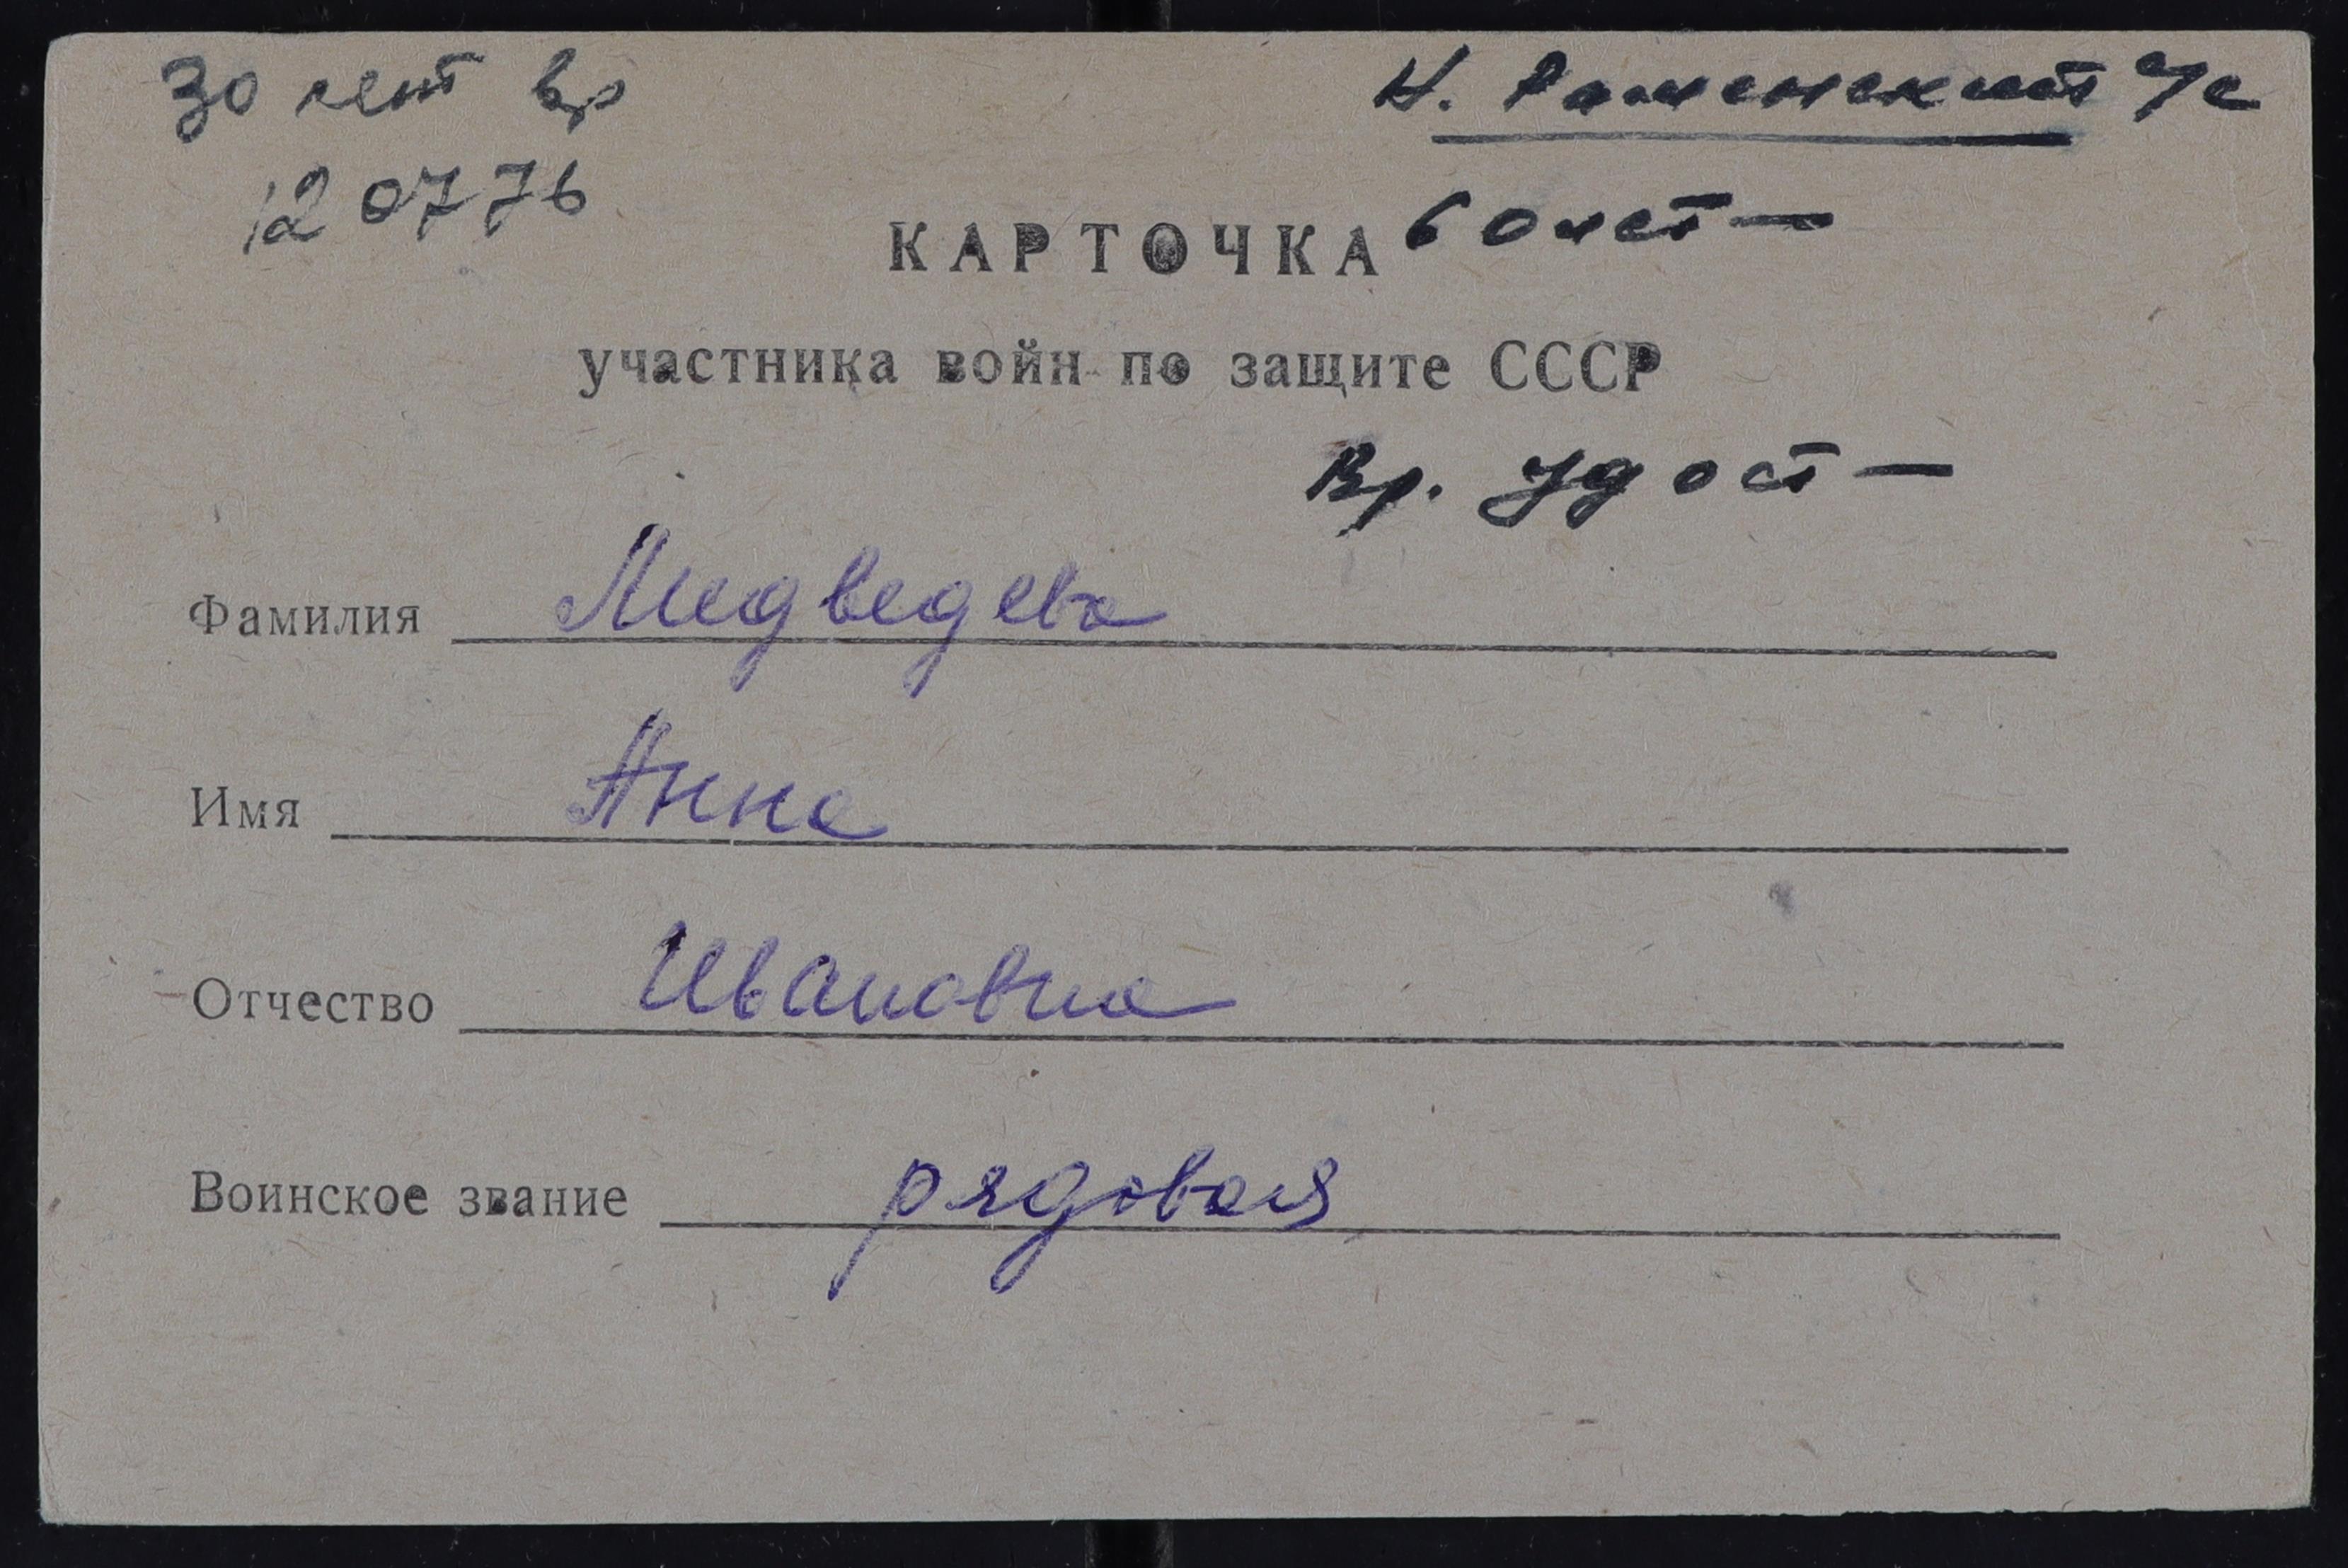 30 лет вр
Н. Раменский с/с
120776
КАРТОЧКА 60 лет —
участника войн по защите СССР
Вр. удост —
Фамилия Медведева
Имя Анна
Отчество Ивановна
Воинское звание рядовая